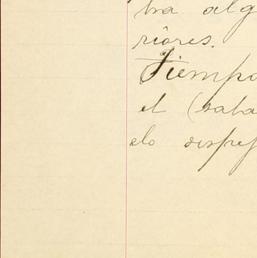 tra alg
riores.
Tiempo
el (saba
elo despej